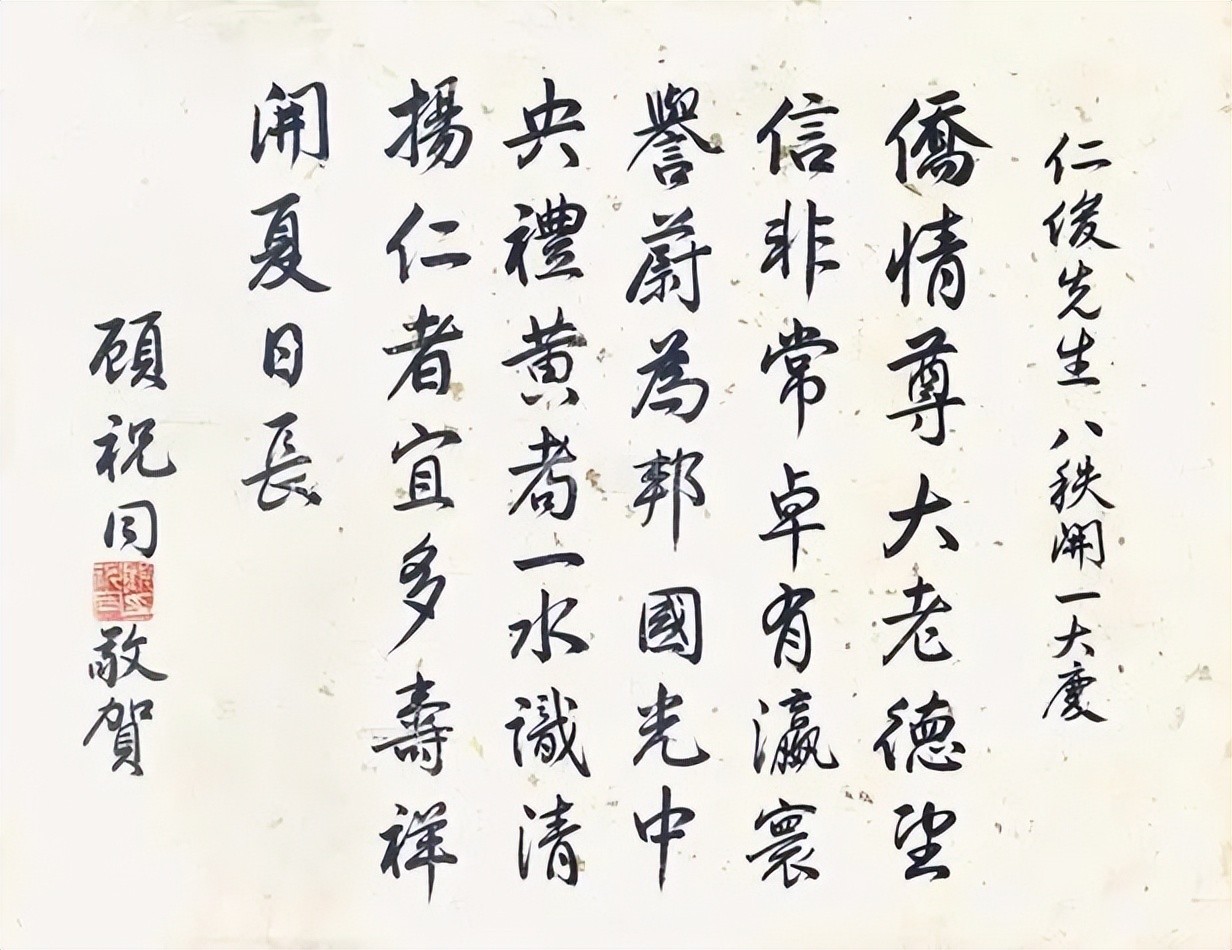 仁俊先生八秩開一大慶
僑情尊大老德望
信非常卓有瀛寰
譽蔚為邦國光中
央禮黃耇一水識清
揚仁者宜多壽祥
開夏日長
顧祝同
敬賀